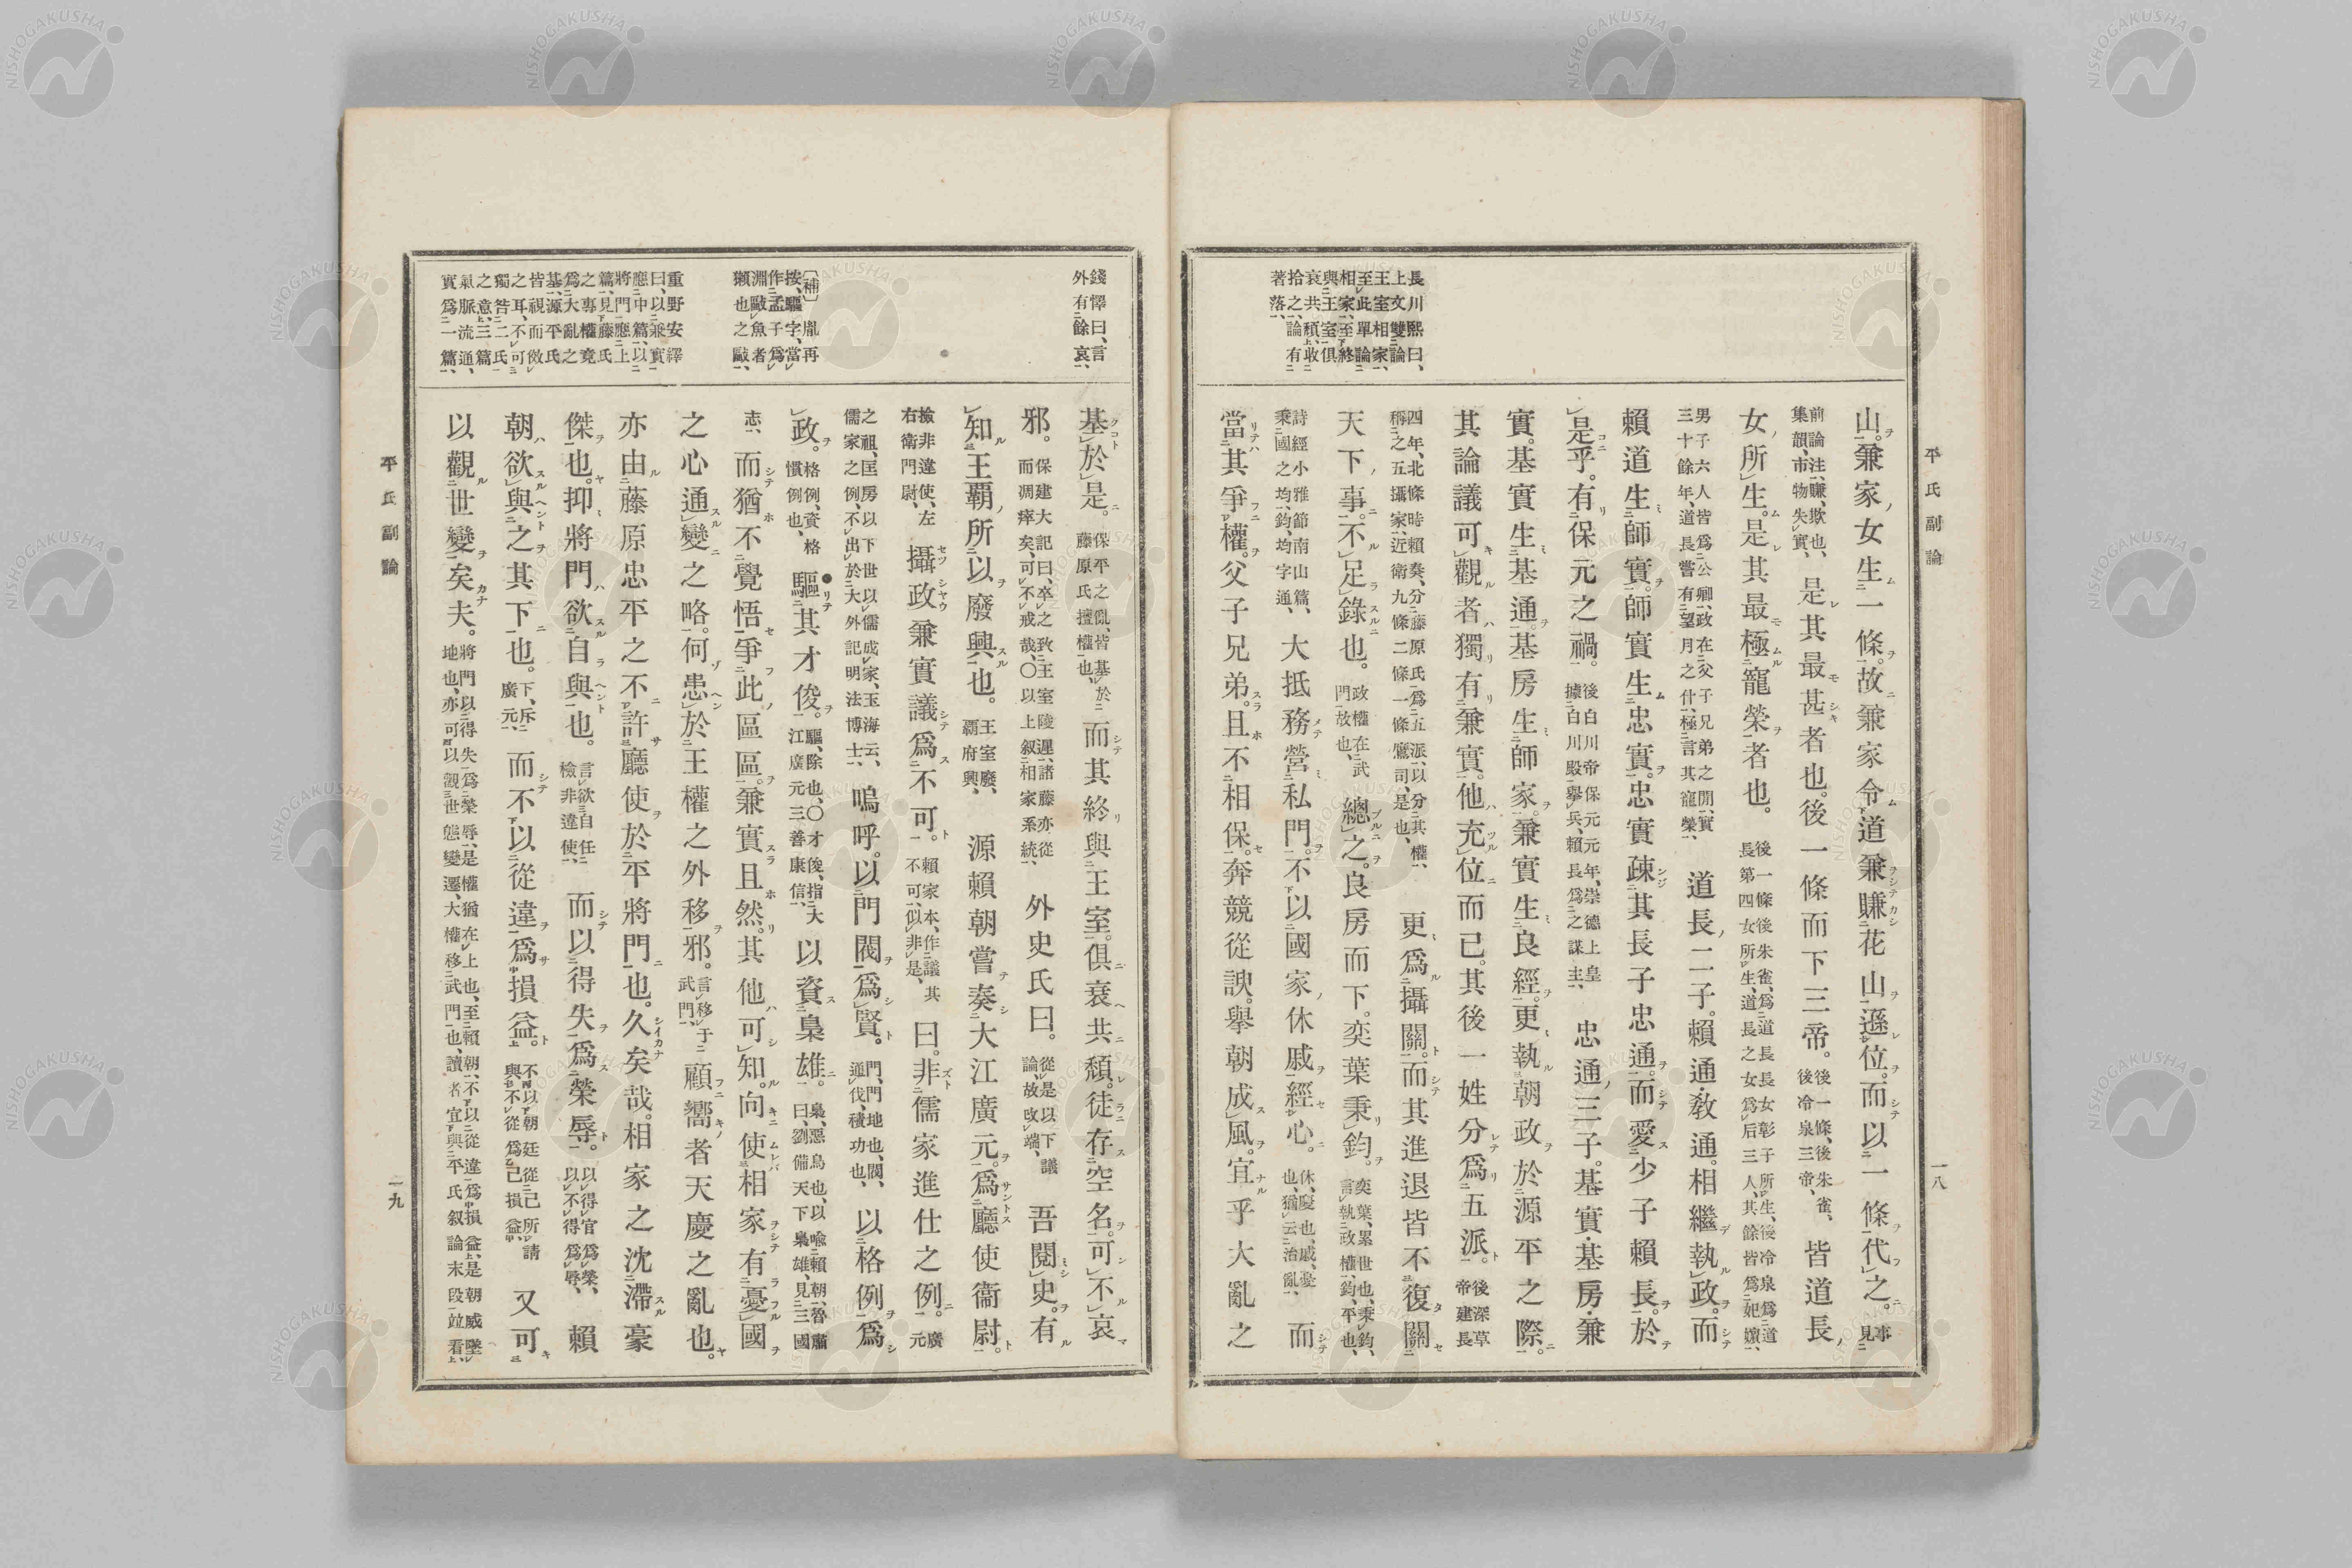 平氏副論
一八
長川熙曰、
上文雙論
王室相家、
至此單論
相家、至終
與王室俱
衰共頽、收
拾之、論有
著落、
山。兼家女生一條。故兼家令道兼賺花山遜位。而以一條代之。事見
前論、注、賺、欺也、集韻、市物失實、是其最甚者也。後一條而下三帝。後一條、後朱雀、後冷泉三帝、皆道長
女所生。是其最極寵榮者也。後一條後朱雀、爲道長長女彰子所生、後冷泉爲道長第四女所生、道長之女爲后三人、其餘皆爲妃嬪、
男子六人皆爲公卿、政在父子兄弟之間、實三十餘年、道長嘗有望月之什、極言其寵榮、道長二子。賴通・敎通。相繼執政。而
賴道生師實。師實生忠實。忠實疎其長子忠通。而愛少子賴長。於
是乎。有保元之禍。後白川帝保元元年、崇德上皇據白川殿擧兵、賴長爲之謀主、忠通三子。基實・基房・兼
實。基實生基通。基房生師家。兼實生良經。更執朝政於源平之際。
其論議可觀者獨有兼實。他充位而已。其後一姓分爲五派。後深草帝建長
四年、北條時賴奏、分藤原氏爲五派、以分其權、稱之五攝家、近衛九條二條一條鷹司、是也、更爲攝關。而其進退皆不復關
天下事。不足錄也。政權在武門故也、總之。良房而下。奕葉秉鈞。奕葉、累世也、秉鈞、言執政權、鈞、平也、
詩經小雅節南山篇、秉國之均、鈞、均字通、大抵務營私門。不以國家休戚經心。休、慶也、戚、憂也、猶云治亂、而
當其爭權。父子兄弟。且不相保。奔競從諛。擧朝成風。宜乎大亂之
錢懌曰、言
外有餘哀、
〔補〕胤再
按、驅字、當
作孟子爲
淵敺魚者
獺也之敺、
重野安繹
曰、以兼實
應中篇、以
將門應上
篇、見藤氏
之專權竟
爲大亂之
基、源平氏
皆視而傚
之耳、不可
獨咎二氏
之意、三篇
氣脈流通、
實爲一篇、
基於是。保平之亂、皆基於藤原氏擅權也、而其終與王室。俱衰共頽。徒存空名。可不哀
邪。保建大記曰、卒之致王室陵遲、諸藤亦從而凋瘁矣、可不戒哉、〇以上叙相家系統、外史氏曰。從是以下議論、故改端、吾閱史。有
知王覇所以廢興也。王室廢、覇府興、源賴朝嘗奏大江廣元。爲廳使衞尉。
撿非違使、左右衛門尉、攝政兼實議爲不可。賴家本、作議其不可、似非是、曰。非儒家進仕之例。廣元
之祖、匡房以下世以儒成家、玉海云、儒家之例、不出於大外記明法博士、嗚呼。以門閥爲賢。門、門地也、閥、通伐、積功也、以格例爲
政。格例、資格慣例也、驅其才俊。驅、除也、〇才俊、指大江廣元三善康信、以資梟雄。梟、惡鳥也、以喩賴朝、晉肅曰、劉備天下梟雄、見三國
志、而猶不覺悟爭此區區。兼實且然。其他可知。向使相家有憂國
之心通變之略。何患於王權之外移邪。言移于武門、顧嚮者天慶之亂也。
亦由藤原忠平之不許廳使於平將門也。久矣哉。相家之沈滯豪
傑也。抑將門欲自與也。言欲自任檢非違使、而以得失爲榮辱。以得官爲榮、以不得爲辱、賴
朝欲與之其下也。下、斥廣元、而不以從違爲損益。不以朝廷從己所請與不從爲己損益、又可
以觀世變矣夫。將門以得失爲榮辱、是權猶在上也、至賴朝、不以從違爲損益、是朝威墜地也、亦可以觀世態變遷、大權移武門也、讀者宜與平氏叙論末段竝看、
平氏副論
一九